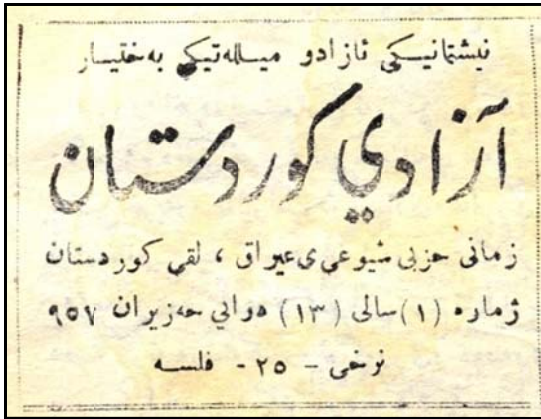 نیشتمانیکی ئازادو میللەتیکی بەختیار
آزادي کوردستان
زمانی حزبی شیوعی ی عیراق ، لقی کوردستان
ژماره (١) سالی (١٣) دوایی حەزیران ٩٥٧
نرخی - ٢٥ - فلسە